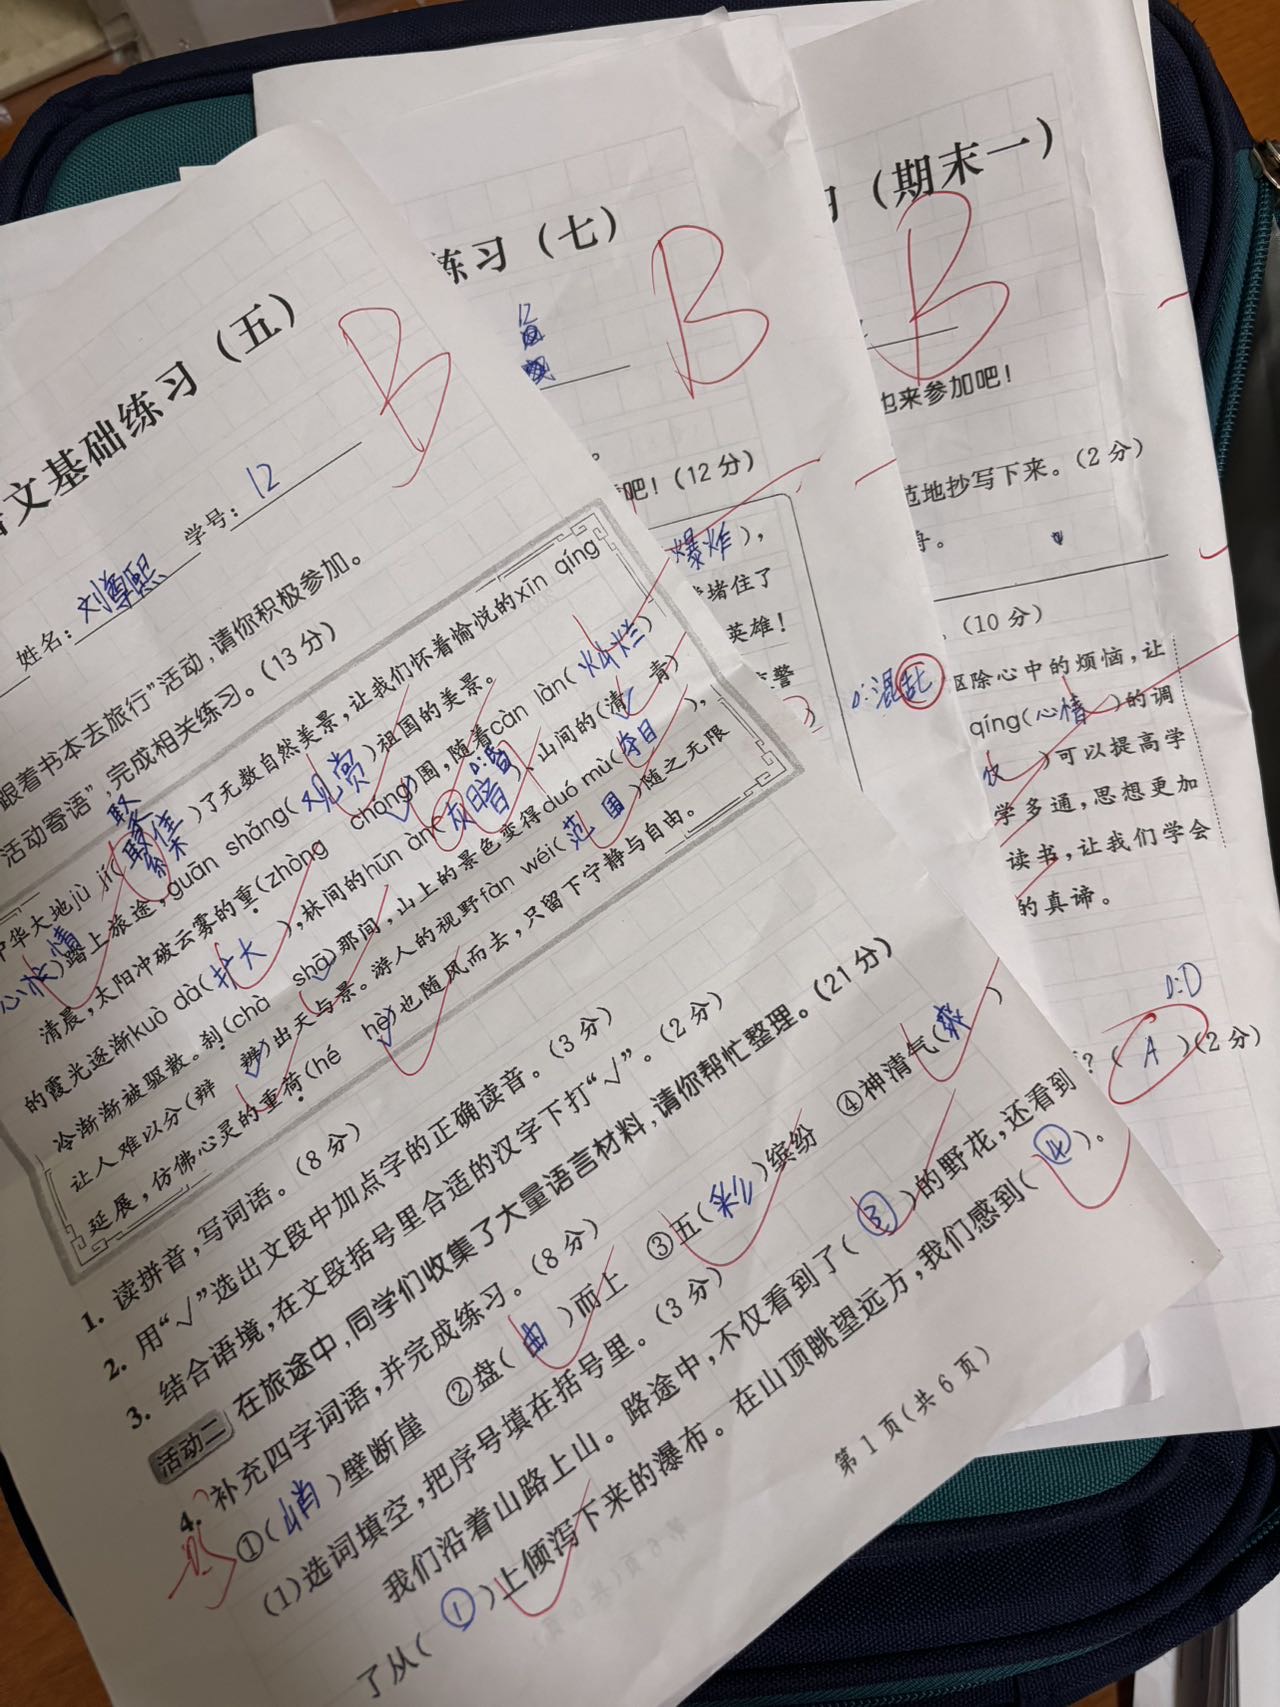 文基础练习（五）
B
姓名：刘尊熙 学号：12
跟着书本去旅行”活动，请你积极参加。
活动寄语”，完成相关练习。（13 分）
中华大地jù jí(聚集)了无数自然美景，让我们怀着愉悦的xīn qíng
(心情)踏上旅途，guān shǎng(观赏)祖国的美景。
清晨，太阳冲破云雾的重(zhòng chóng)围，随着càn làn(灿烂)
的霞光逐渐kuò dà(扩大)，林间的hūn àn(灰暗)，山间的(清 青)
冷渐渐被驱散。刹(chà shā)那间，山上的景色变得duó mù(夺目)，
让人难以分(辩 辨)出天与景。游人的视野fàn wéi(范围)随之无限
延展，仿佛心灵的重荷(hé hè)也随风而去，只留下宁静与自由。
1. 读拼音，写词语。（8 分）
2. 用“√”选出文段中加点字的正确读音。（3 分）
3. 结合语境，在文段括号里合适的汉字下打“√”。（2 分）
活动二 在旅途中，同学们收集了大量语言材料，请你帮忙整理。（21 分）
4. 补充四字词语，并完成练习。（8 分）
①(峭)壁断崖 ②盘(曲)而上 ③五(彩)缤纷 ④神清气(爽)
(1)选词填空，把序号填在括号里。（3 分）
我们沿着山路上山。路途中，不仅看到了(③)的野花，还看到
了从(①)上倾泻下来的瀑布。在山顶眺望远方，我们感到(④)。
第 1 页（共 6 页）
练习（七）
B
12
吧！（12 分）
爆炸)，
堵住了
英雄！
警
D:混乱
习（期末一）
B
也来参加吧！
范地抄写下来。（2 分）
舟。
（10 分）
区除心中的烦恼，让
qíng(心情)的调
)可以提高学
学多通，思想更加
读书，让我们学会
的真谛。
D:D
？(A)(2 分)